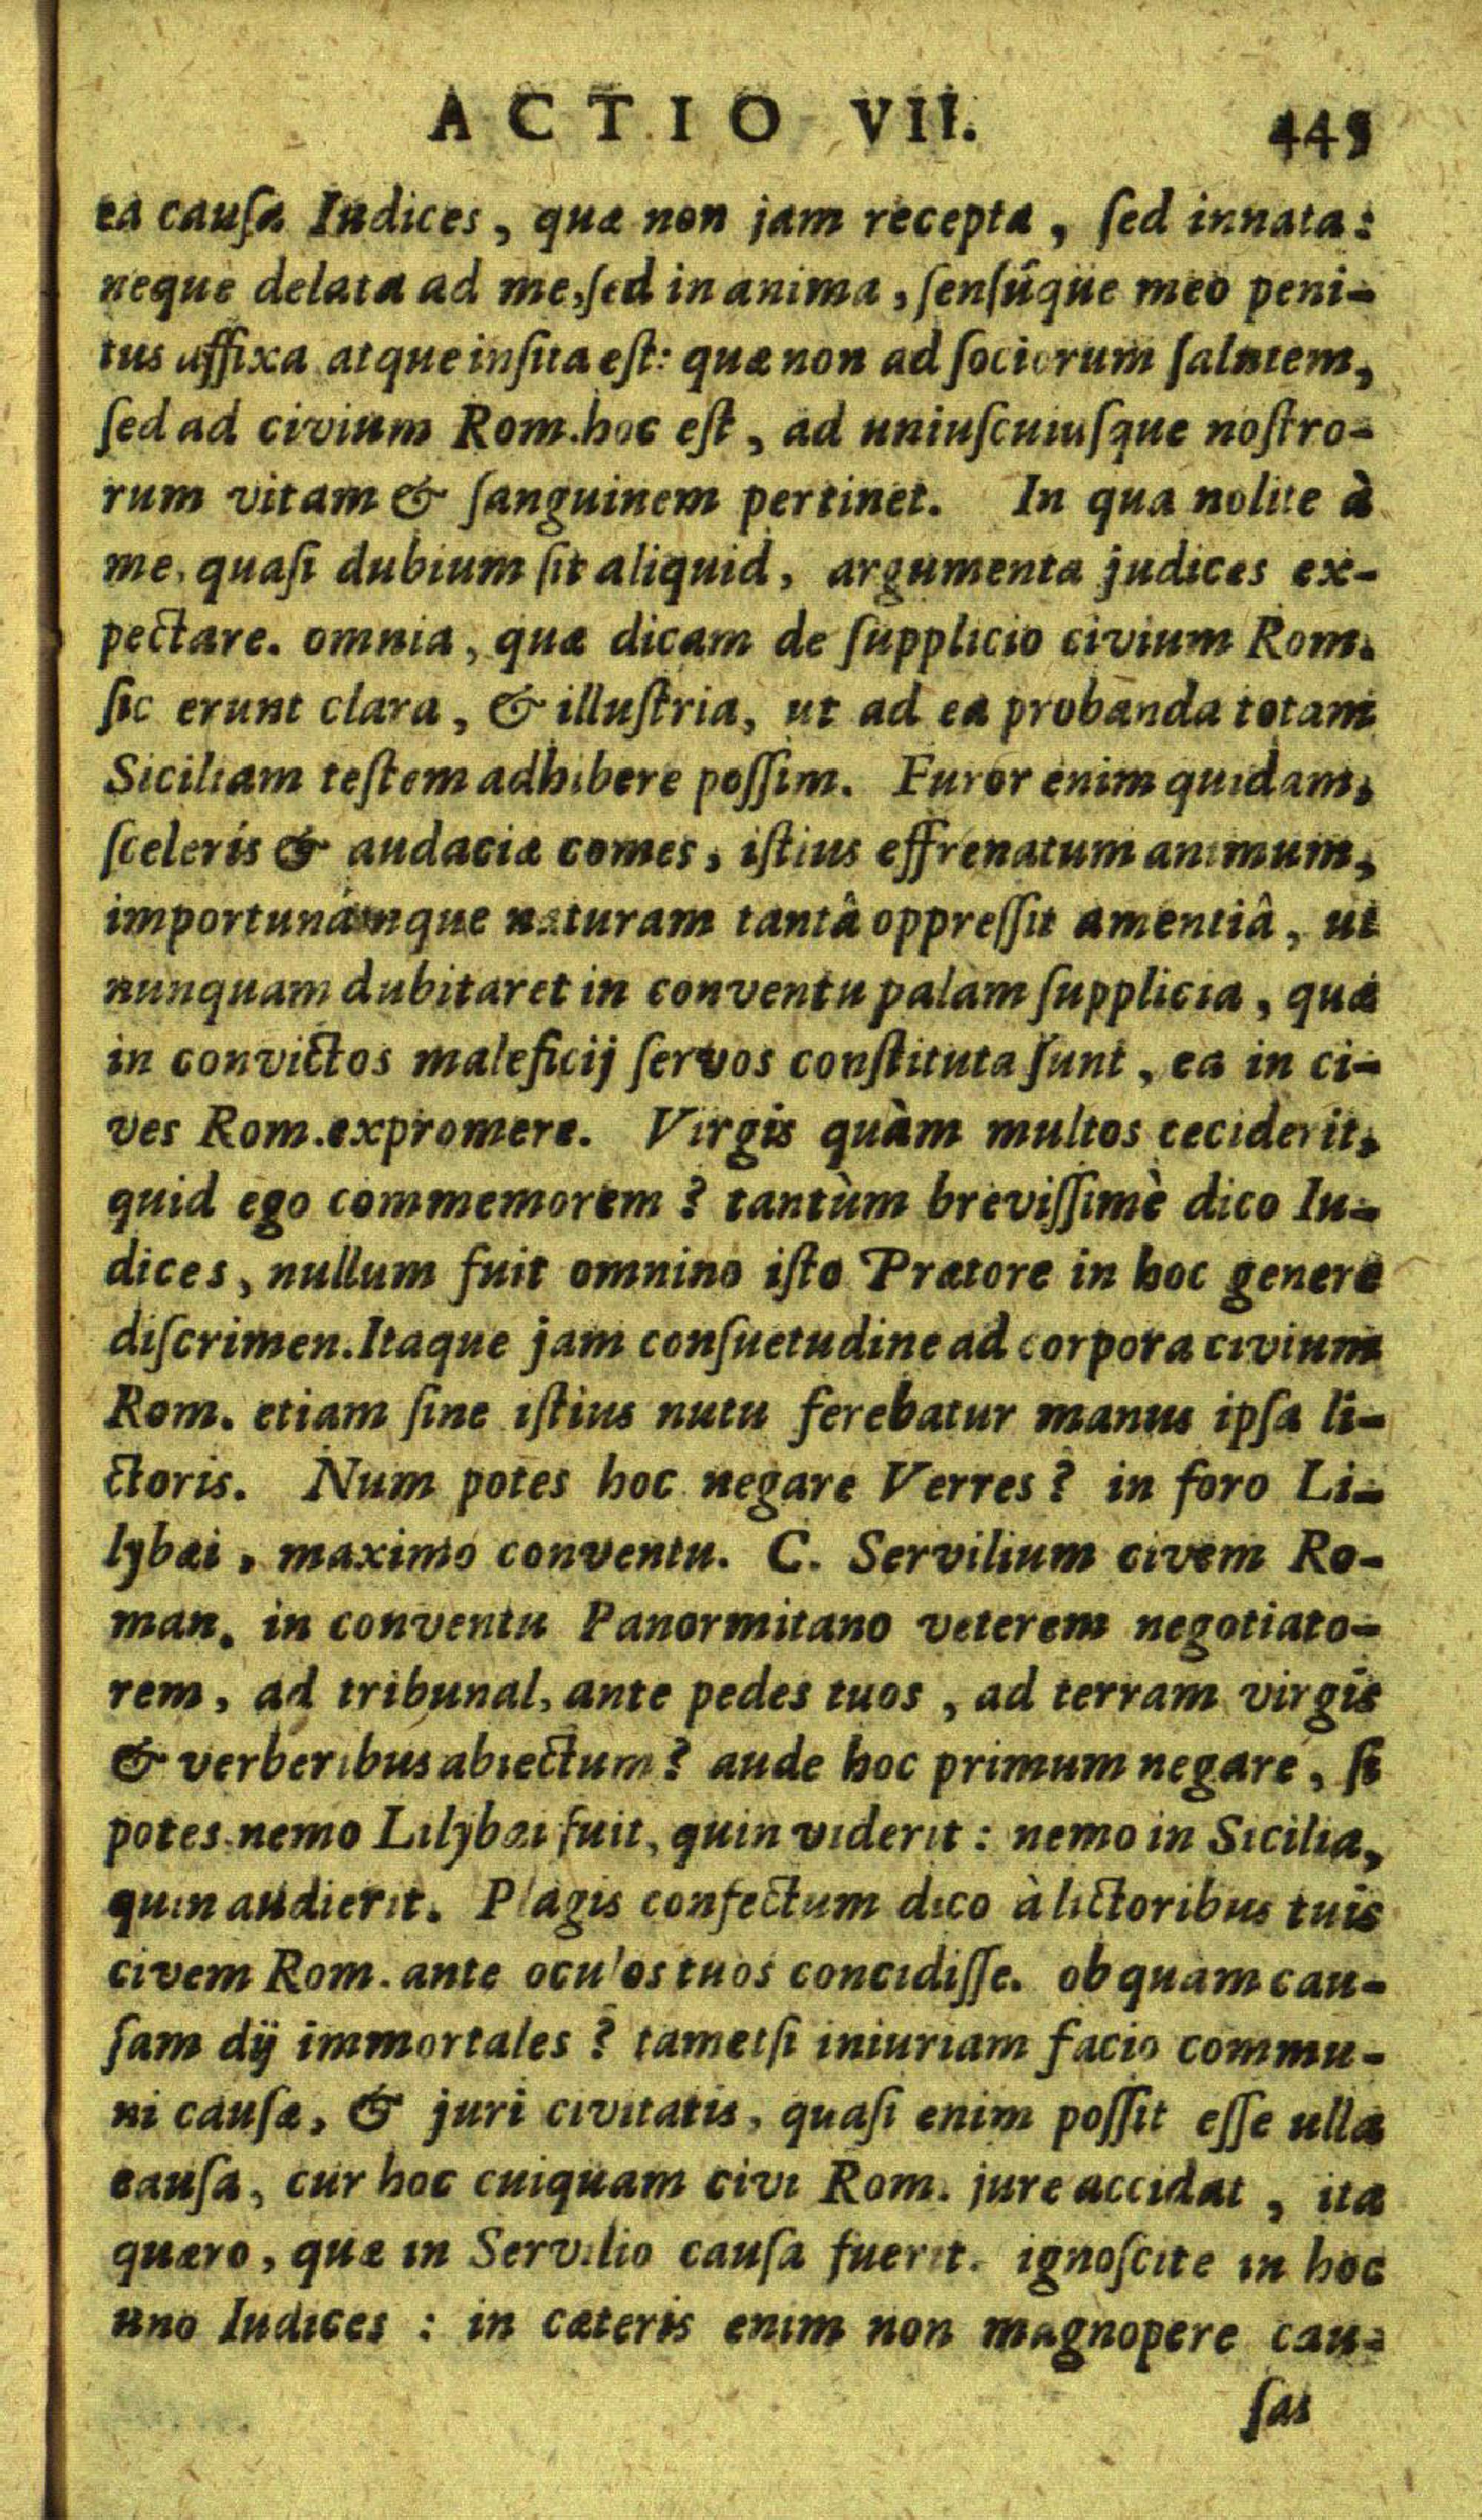 ACTIO VII. 445
ea causa Iudices, quæ non jam recepta, sed innata:
neque delata ad me, sed in anima, sensúque meo peni-
tus affixa atque insita est: quæ non ad sociorum salutem,
sed ad civium Rom. hoc est, ad uniuscuiusque nostro-
rum vitam & sanguinem pertinet. In qua nolite à
me, quasi dubium sit aliquid, argumenta judices ex-
pectare. omnia, quæ dicam de supplicio civium Rom.
sic erunt clara, & illustria, ut ad ea probanda totam
Siciliam testem adhibere possim. Furor enim quidam,
sceleris & audaciæ comes, istius effrenatum animum,
importunámque naturam tantâ oppressit amentiâ, ut
nunquam dubitaret in conventu palam supplicia, quæ
in convictos maleficij servos constituta sunt, ea in ci-
ves Rom. expromere. Virgis quàm multos ceciderit,
quid ego commemorem? tantùm brevissimè dico Iu-
dices, nullum fuit omnino isto Prætore in hoc genere
discrimen. Itaque jam consuetudine ad corpora civium
Rom. etiam sine istius nutu ferebatur manus ipsa li-
ctoris. Num potes hoc negare Verres? in foro Li-
lybæi, maximo conventu. C. Servilium civem Ro-
man. in conventu Panormitano veterem negotiato-
rem, ad tribunal, ante pedes tuos, ad terram virgis
& verberibus abiectum? aude hoc primum negare, si
potes. nemo Lilybæi fuit, quin viderit: nemo in Sicilia,
quin audierit. Plagis confectum dico à lictoribus tuis
civem Rom. ante oculos tuos concidisse. ob quam cau-
sam dij immortales? tametsi iniuriam facio commu-
ni causæ, & juri civitatis, quasi enim possit esse ulla
causa, cur hoc cuiquam civi Rom. jure accidat, ita
quæro, quæ in Servilio causa fuerit. ignoscite in hoc
uno Iudices: in cæteris enim non magnopere cau-
sas